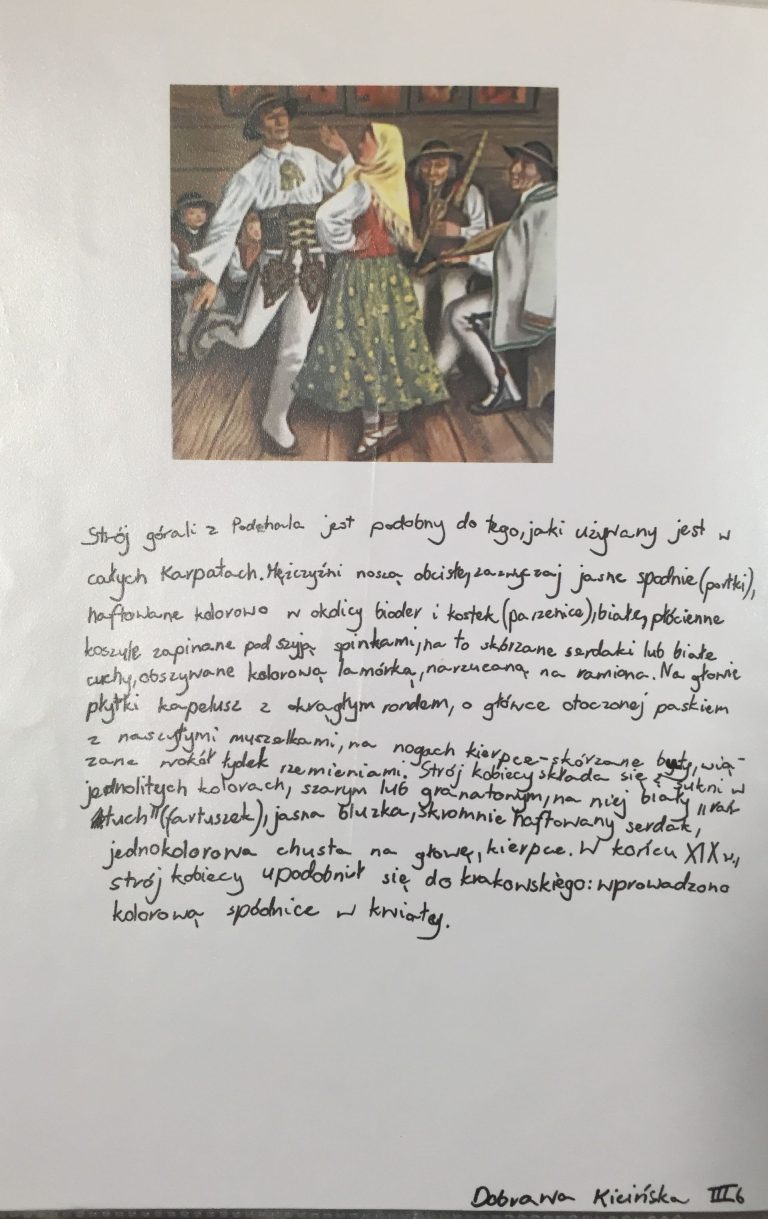 Strój górali z Podchala jest podobny do tego, jaki używany jest w
całych Karpatach. Mężczyźni noszą obcisłe, zazwyczaj jasne spodnie (portki),
haftowane kolorowo w okolicy bioder i kostek (parzenice); białe, płócienne
koszule zapinane pod szyją spinkami, na to skórzane serdaki lub białe
cuchy, obszywane kolorową lamórką, narzucaną na ramiona. Na głowie
płytki kapelusz z okrągłym rondem, o główce otoczonej paskiem
z naszytymi muszelkami, na nogach kierpce - skórzane buty, wią-
zane wokół łydek rzemieniami. Strój kobiecy składa się z sukni w
jednolitych kolorach, szarym lub granatowym, na niej biały "rań
tuch" (fartuszek), jasna bluzka, skromnie haftowany serdak,
jednokolorowa chusta na głowę, kierpce. W końcu XIX w.,
strój kobiecy upodobnił się do krakowskiego: wprowadzono
kolorową spódnice w kwiaty.
Dobrawa Kicińska III b